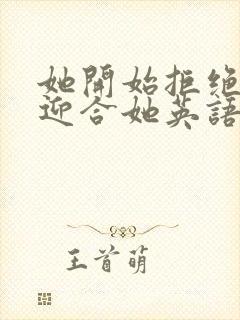 她開始拒绝
迎合她英語
王首萌